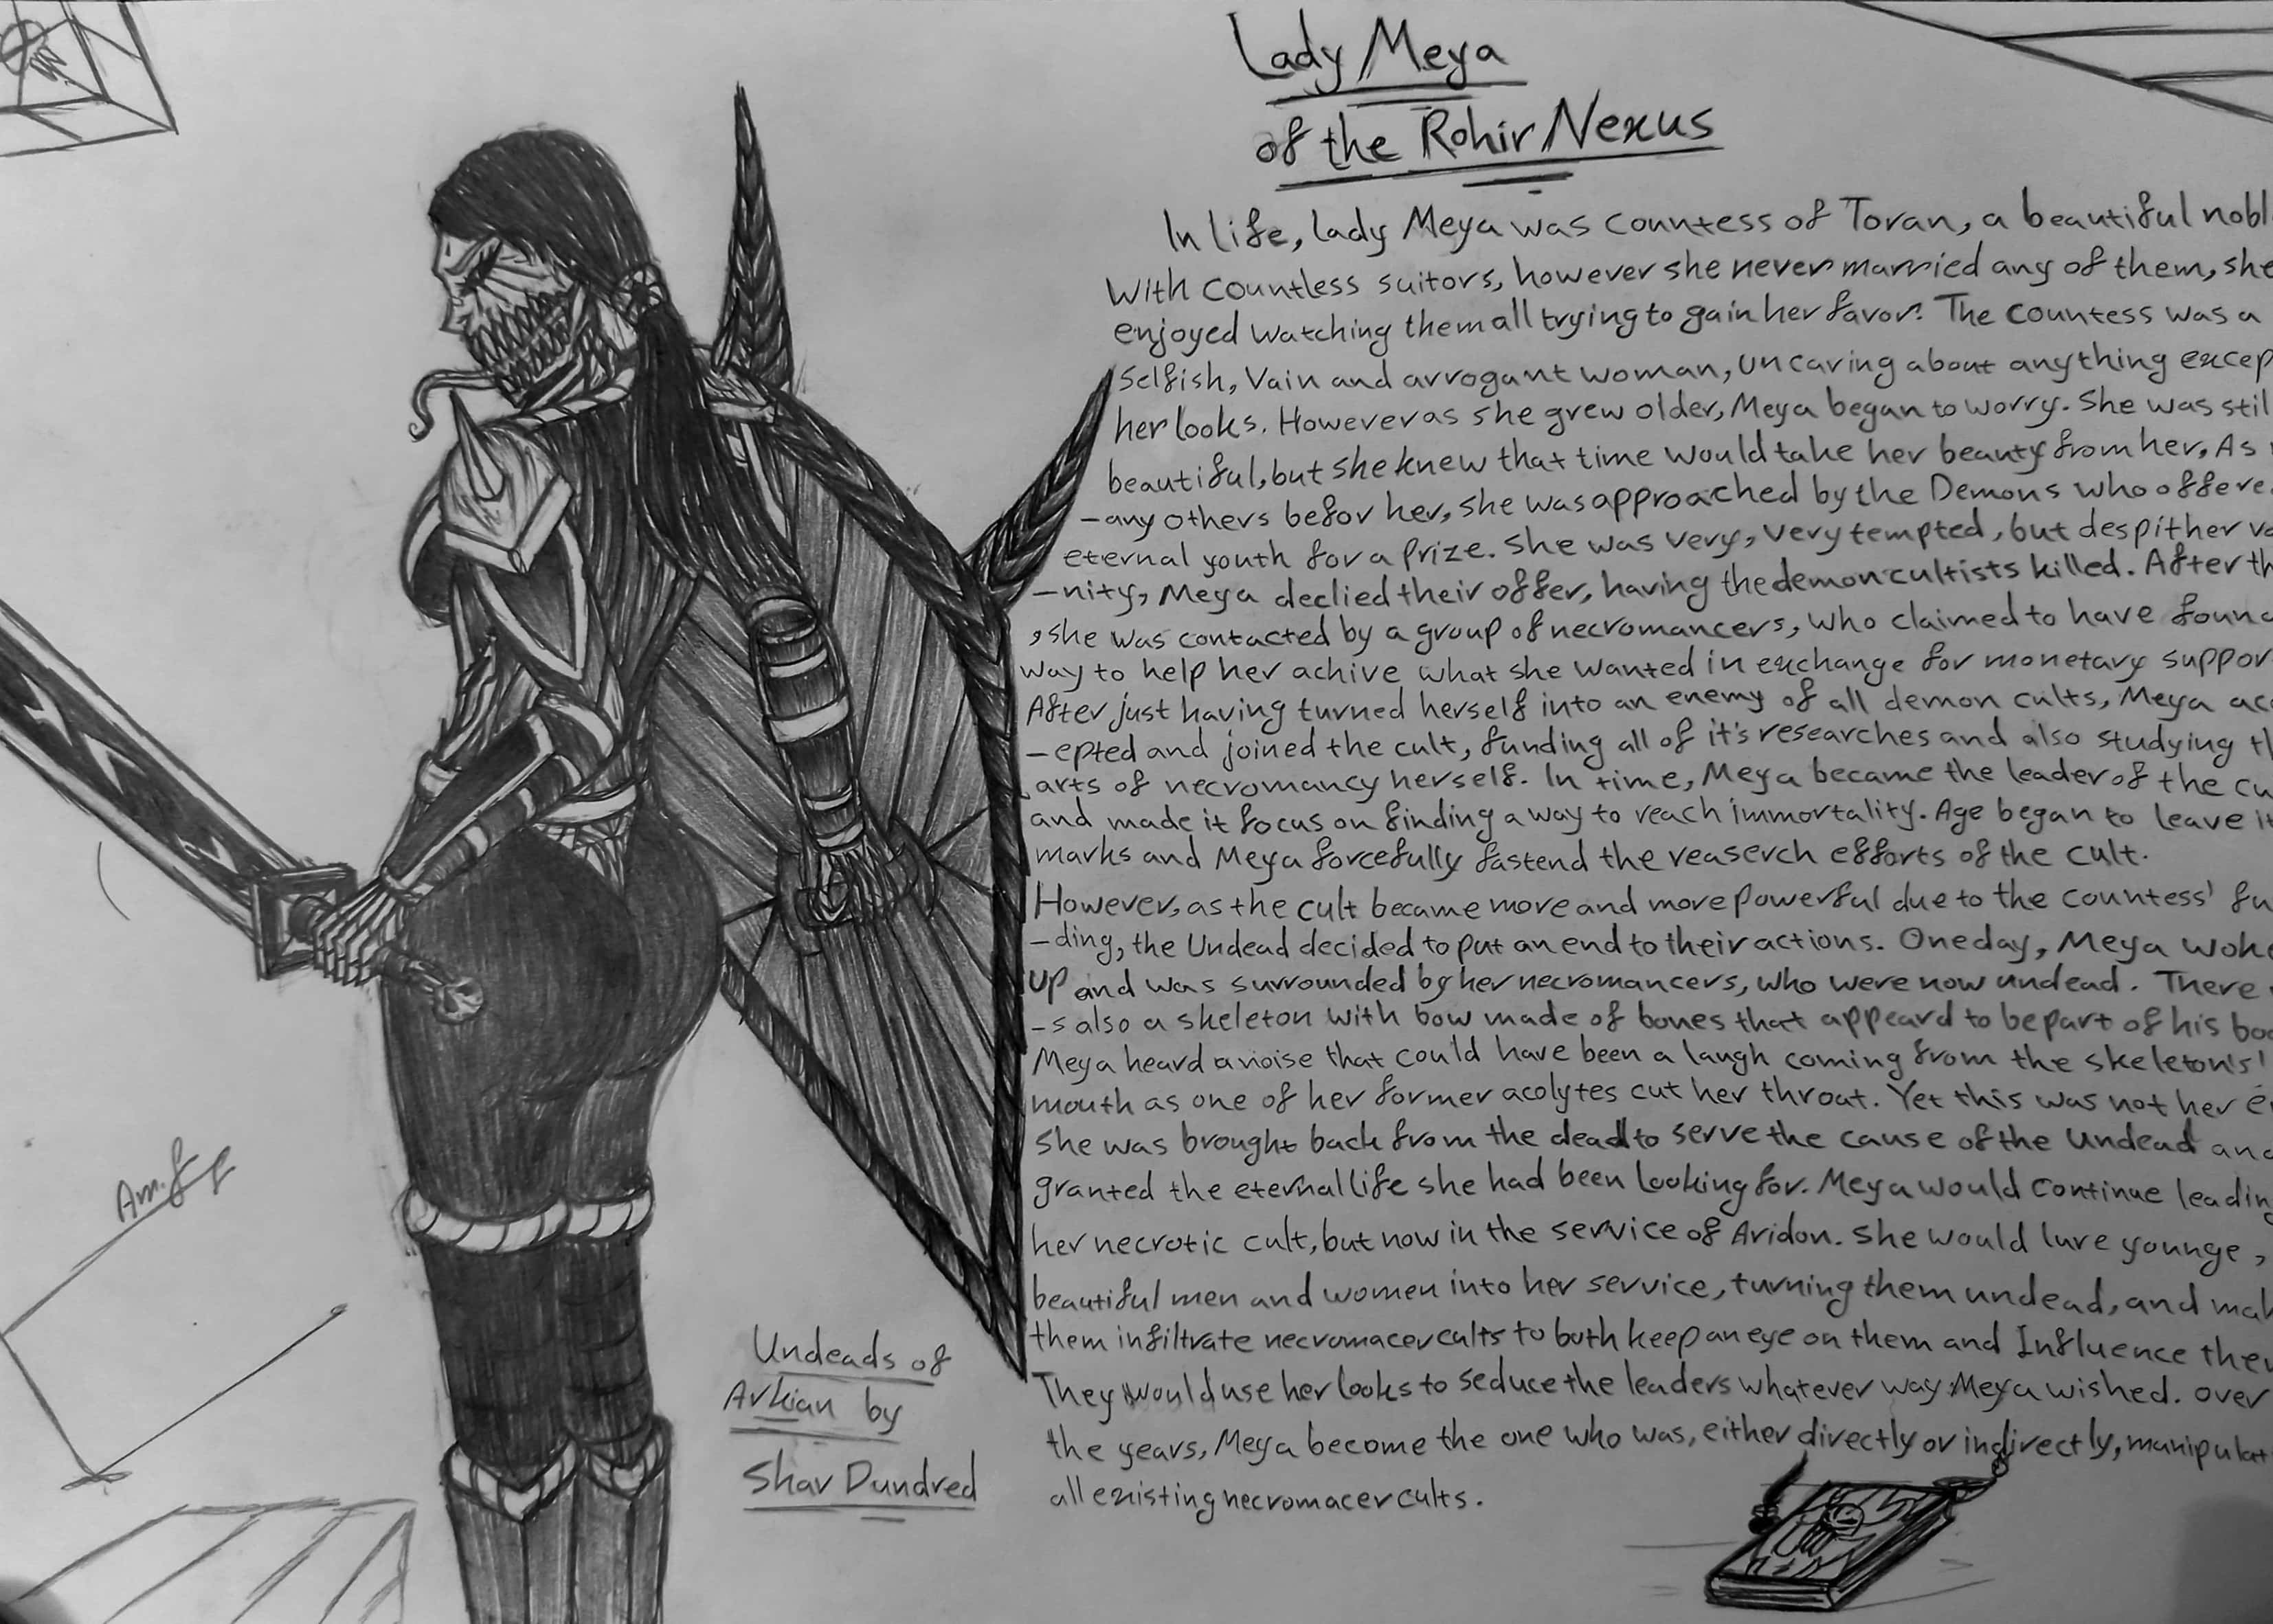 Lady Meya
of the Rohir Nexus
In life, lady Meya was countess of Toran, a beautiful nobl
with countless suitors, however she never married any of them, she
enjoyed watching them all trying to gain her favor. The countess was a
selfish, vain and arrogant woman, uncaring about anything excep
her looks. However as she grew older, Meya began to worry. She was stil
beautiful, but she knew that time would take her beauty from her. As
-any others befor her, she was approached by the Demons who offere
eternal youth for a prize. She was very, very tempted, but despit her va
-nity, Meya declied their offer, having the demon cultists killed. After th
, she was contacted by a group of necromancers, who claimed to have foun
way to help her achive what she wanted in exchange for monetary suppor
After just having turned herself into an enemy of all demon cults, Meya acc
-epted and joined the cult, funding all of it's researches and also studying th
arts of necromancy herself. In time, Meya became the leader of the cu
and made it focus on finding a way to reach immortality. Age began to leave it
marks and Meya forcefully fastend the reaserch efforts of the cult.
However, as the cult became more and more powerful due to the countess' fu
-ding, the Undead decided to put an end to their actions. One day, Meya woke
up and was surrounded by her necromancers, who were now undead. There
-s also a skeleton with bow made of bones that appeard to be part of his bo
Meya heard a noise that could have been a laugh coming from the skeleton's'
mouth as one of her former acolytes cut her throat. Yet this was not her e
she was brought back from the dead to serve the cause of the Undead and
granted the eternal life she had been looking for. Meya would continue leading
her necrotic cult, but now in the service of Aridon. She would lure younge,
beautiful men and women into her service, turning them undead, and mak
them infiltrate necromacer cults to both keep an eye on them and Influence the
They would use her looks to seduce the leaders whatever way Meya wished. over
the years, Meya become the one who was, either directly or indirectly, manipulat
all existing necromacer cults.
Undeads of
Arkian by
Shar Dundred